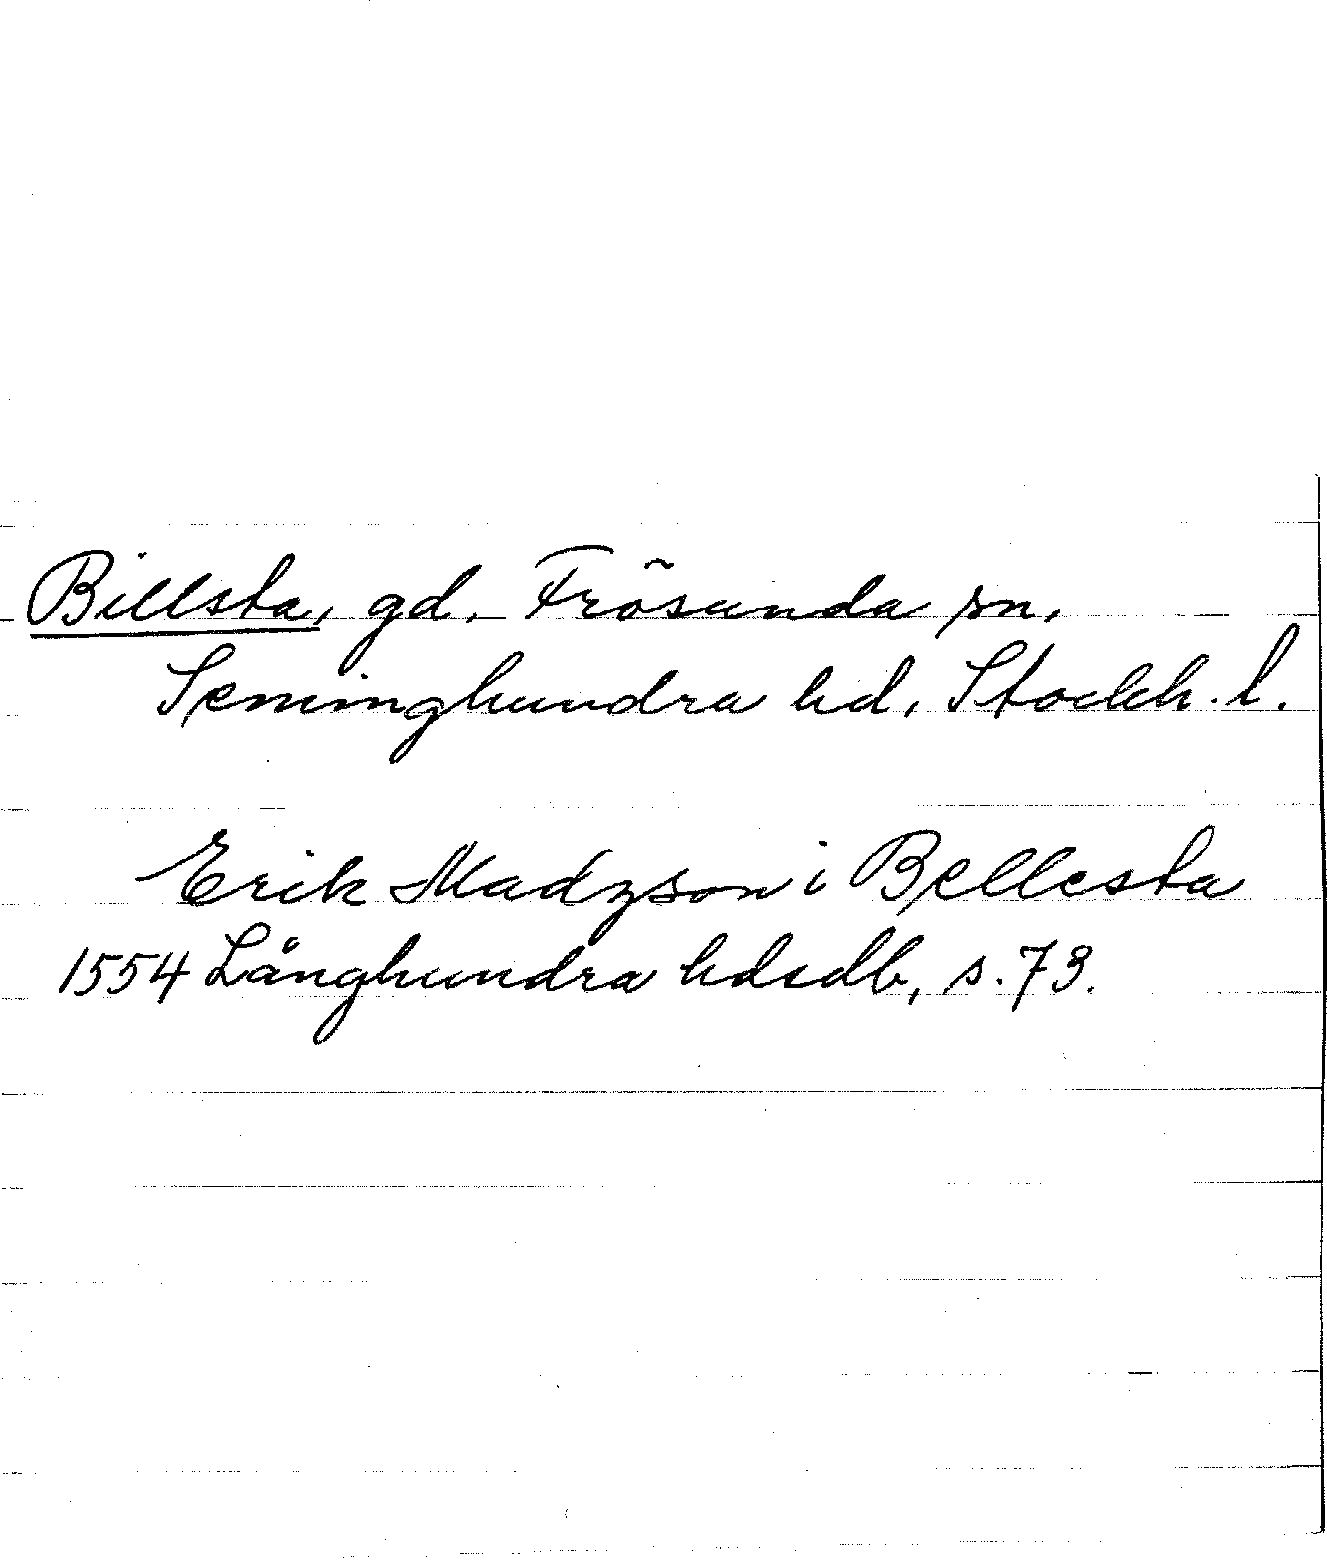 Billsta, gd, Frösunda sn,
Seminghundra hd, Stockh. l.
Erik Madzson i Bellesta
1554 Långhundra hdsdb, s. 73.